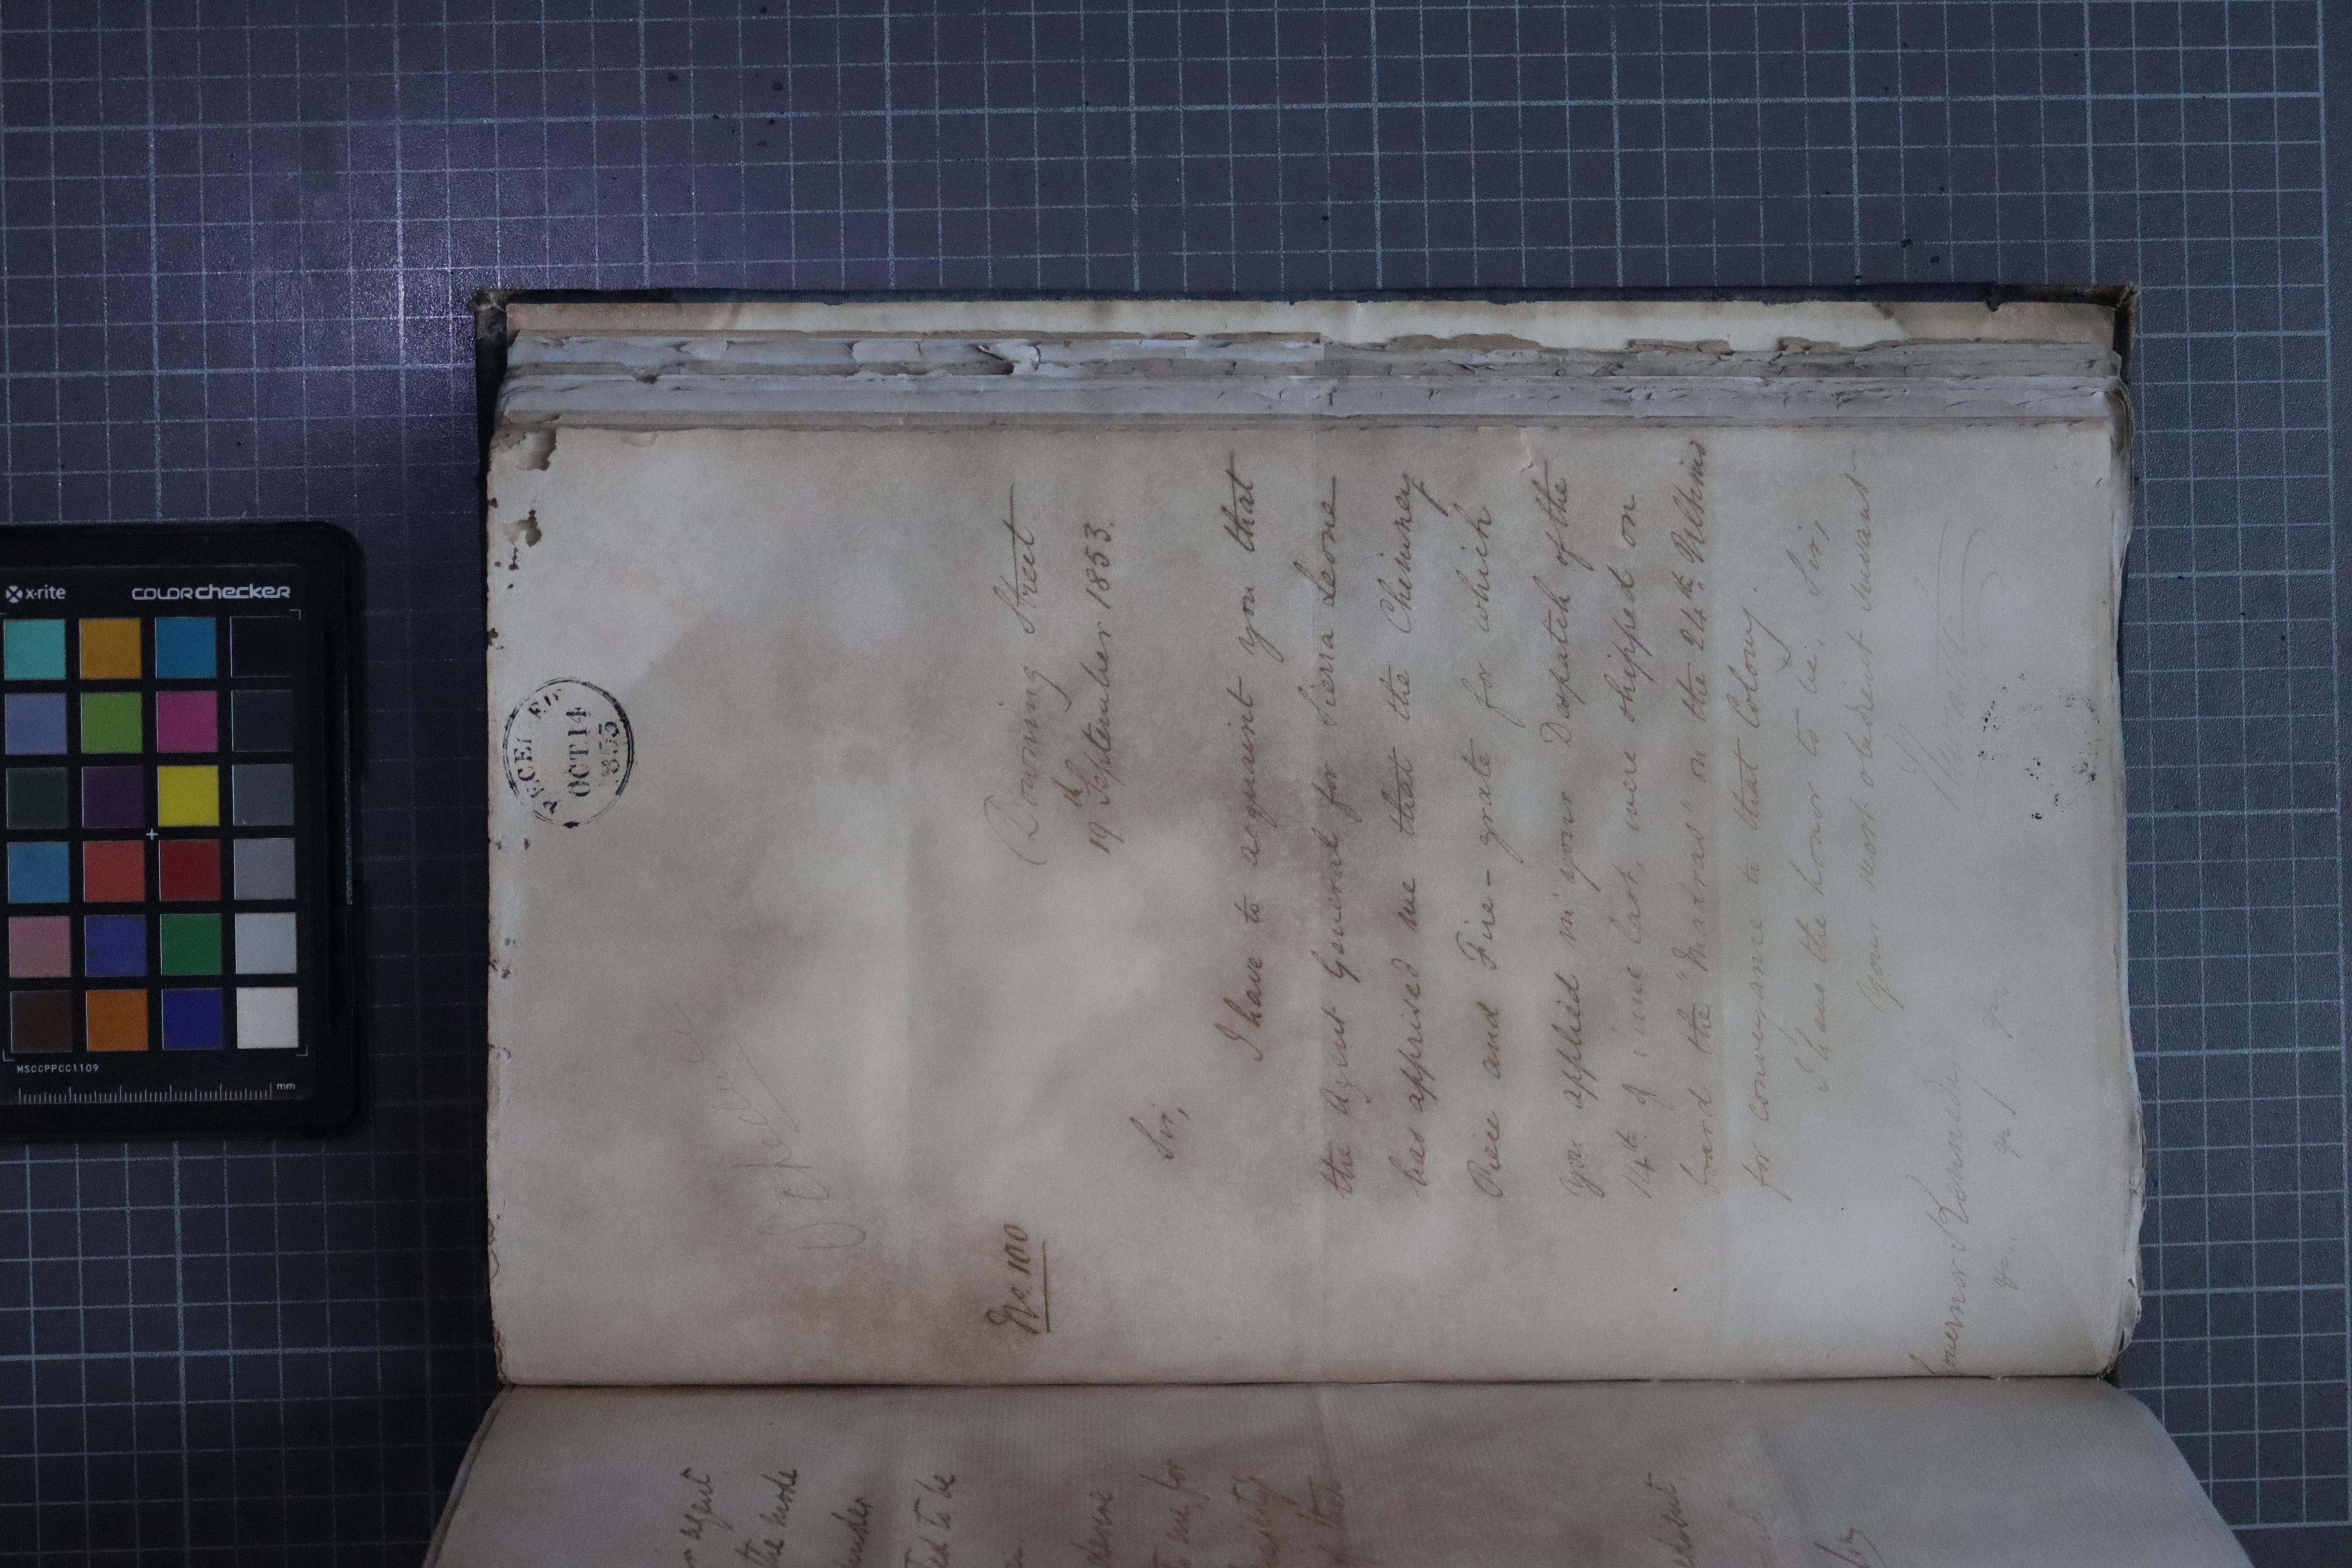 RECEIVED
OCT 14
1853
No. 100
Downing Street
19th September 1853.
Sir,
I have to acquaint you that
the Agent General for Sierra Leone
has apprised me that the Chimney
Piece and Fire-grate for which
you applied in your Despatch of the
14th of June last, were shipped on
board the "Madras" on the 24th Ultimo
for conveyance to that Colony.
I have the honor to be, Sir,
Your most obedient servant
Governor Kennedy
&c &c &c
agent
the mode
under
to be
me for
that
x-rite
COLORchecker
MSCCPPCC1109
mm